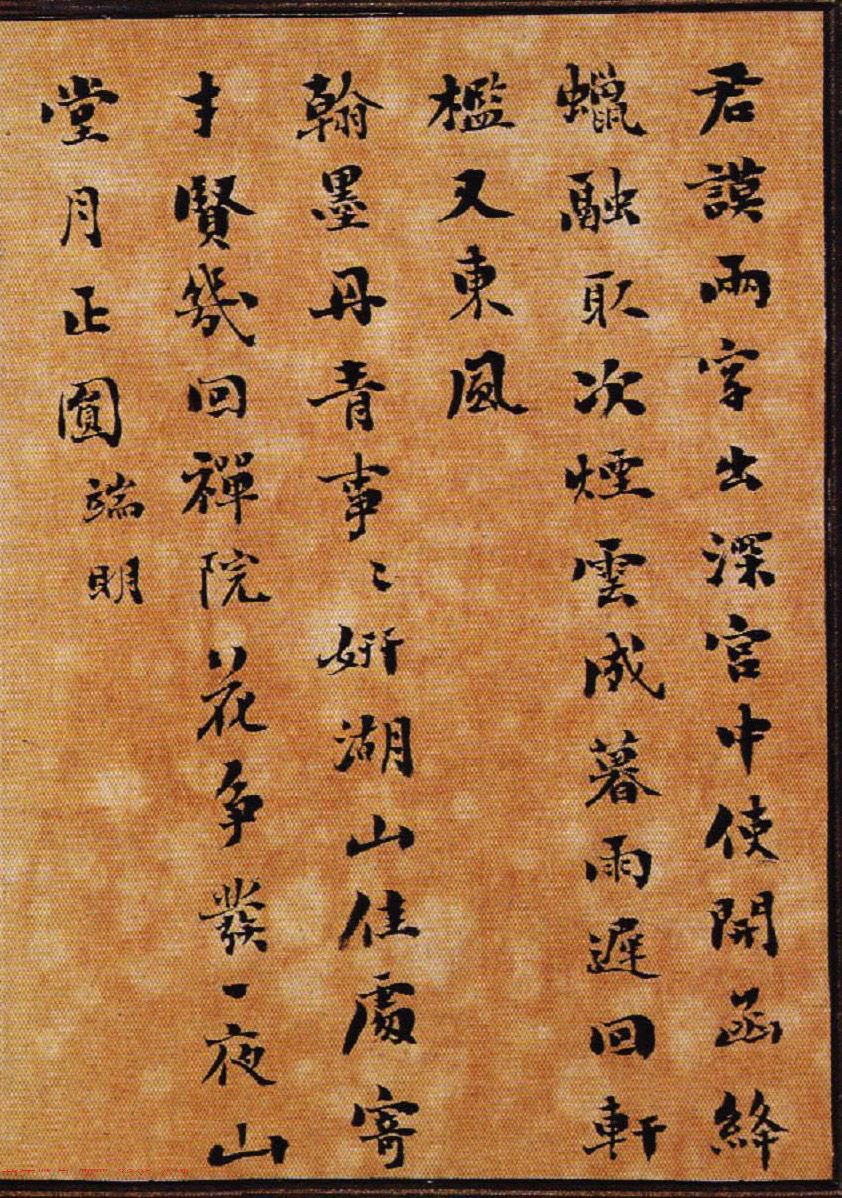 君謨兩字出深宮中使開函絳
蠟融取次煙雲成暮雨遲回軒
檻又東風
翰墨丹青事〻妍湖山佳處寄
才賢幾回禪院花爭發一夜山
堂月正圓端明